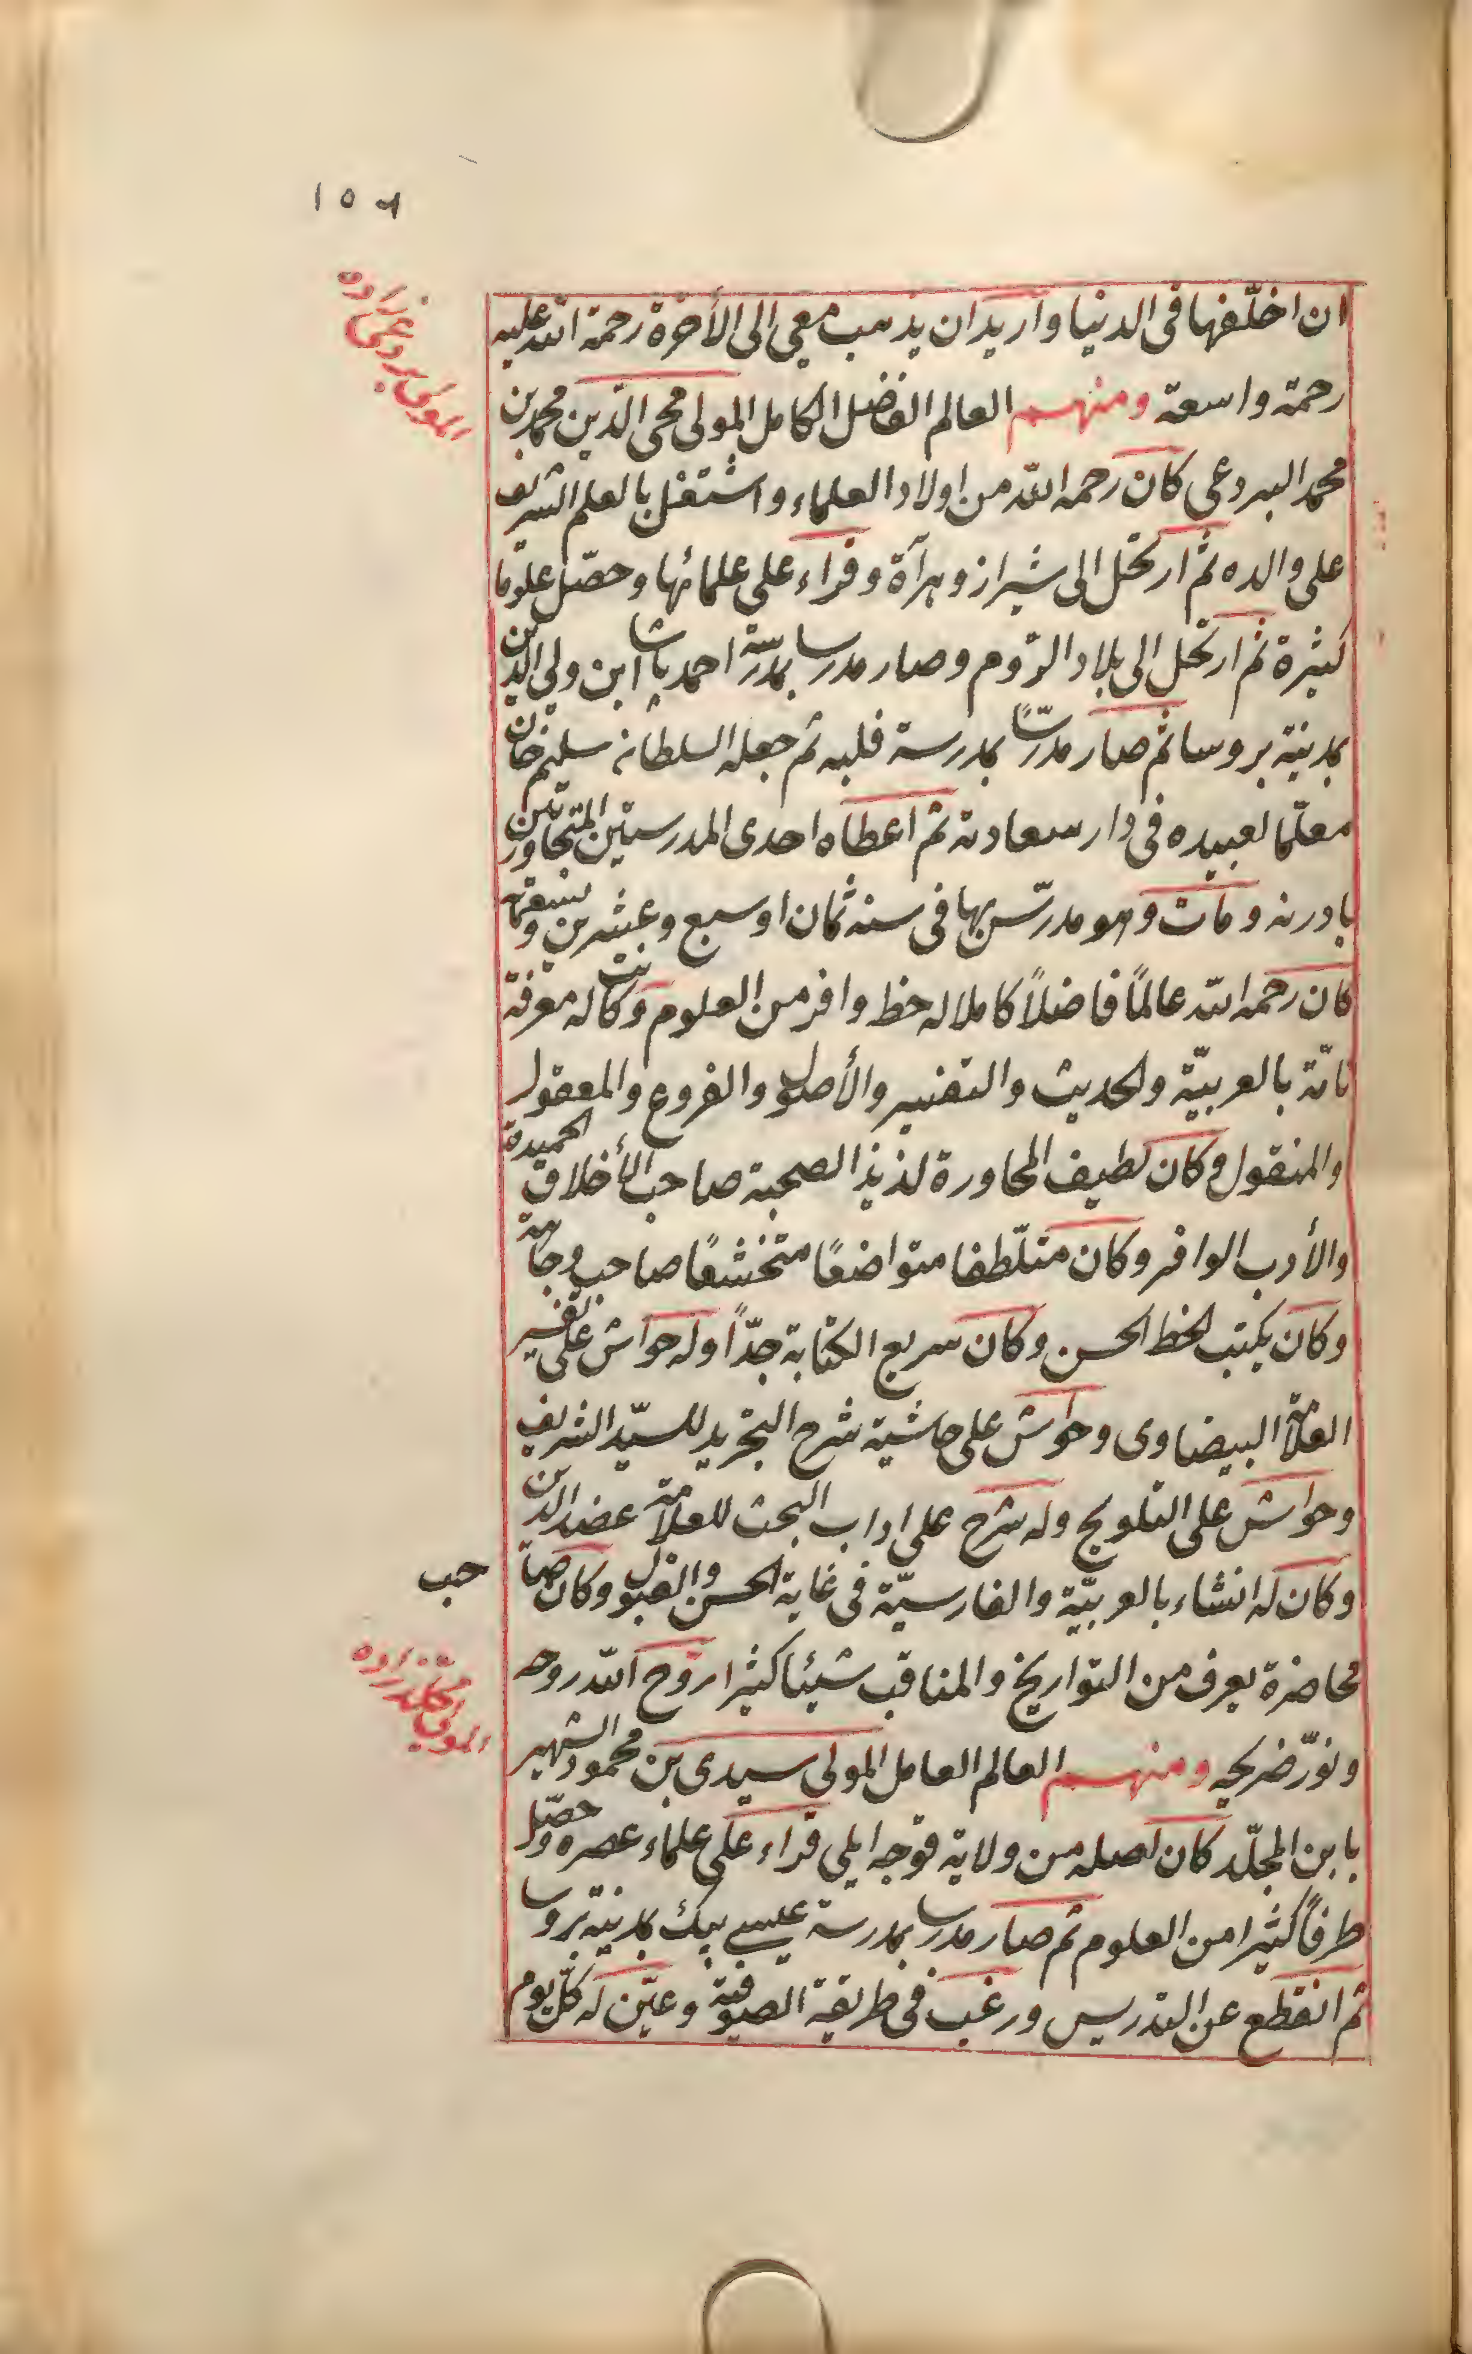 ١٥٦
المولى بردعى زاده
ان اخلّفها فى الدنيا واريد ان يذهب معى الى الأخرة رحمة الله عليه
رحمة واسعة ومنهم العالم الفاضل الكامل المولى محى الدّين محمد بن
محمد البردعى كان رحمه الله من اولاد العلماء واشتغل بالعلم الشريف
على والده ثم ارتحل الى شيراز وهرآة وقراء على علمائها وحصّل علوما
كثيرة ثم ارتحل الى بلاد الرّوم وصار مدرسا بمدرسة احمد پاشا ابن ولى الدين
بمدينة بروسا ثم صار مدرّسًا بمدرسة فلبه ثم جعله السلطان سليم خان
معلّما لعبيده فى دار سعادته ثم اعطاه احدى المدرستين المتجاورتين
بادرنه ومات وهو مدرّس بها فى سنه ثمان او سبع وعشرين وتسعمائة
كان رحمه الله عالمًا فاضلاً كاملا له حظ وافر من العلوم وكانت له معرفة
تامّة بالعربيّة والحديث والتفسير والأصول والفروع والمعقول
والمنقول وكان لطيف المحاورة لذيذ الصحبة صاحب الأخلاق الحميدة
والأدب الوافر وكان متلّطفا متواضعًا متخشعًا صاحب وجاهة
وكان يكتب الخط الحسن وكان سريع الكتابة جدّاً وله حواش على تفسير
العلامة البيضاوى وحواش على حاشية شرح التجريد للسيّد الشريف
وحواش على التلويح وله شرح على اداب البحث للعلامة عضد الدين
وكان له انشاء بالعربيّة والفارسيّة فى غاية الحسن والقبول وكان صا
حب
محاضرة يعرف من التواريخ والمناقب شيئا كثيرا روّح الله روحه
ونوّر ضريحه ومنهم العالم العامل المولى سيدى بن محمود الشهير
المولى مجلد زاده
بابن المجلّد كان اصله من ولاية قوجه ايلى قراء على علماء عصره وحصّل
طرفاً كثيرا من العلوم ثم صار مدرسا بمدرسة عيسى بيك بمدينة بروسا
ثم انقطع عن التدريس ورغب فى طريقة الصوفية وعيّن له كلّ يوم